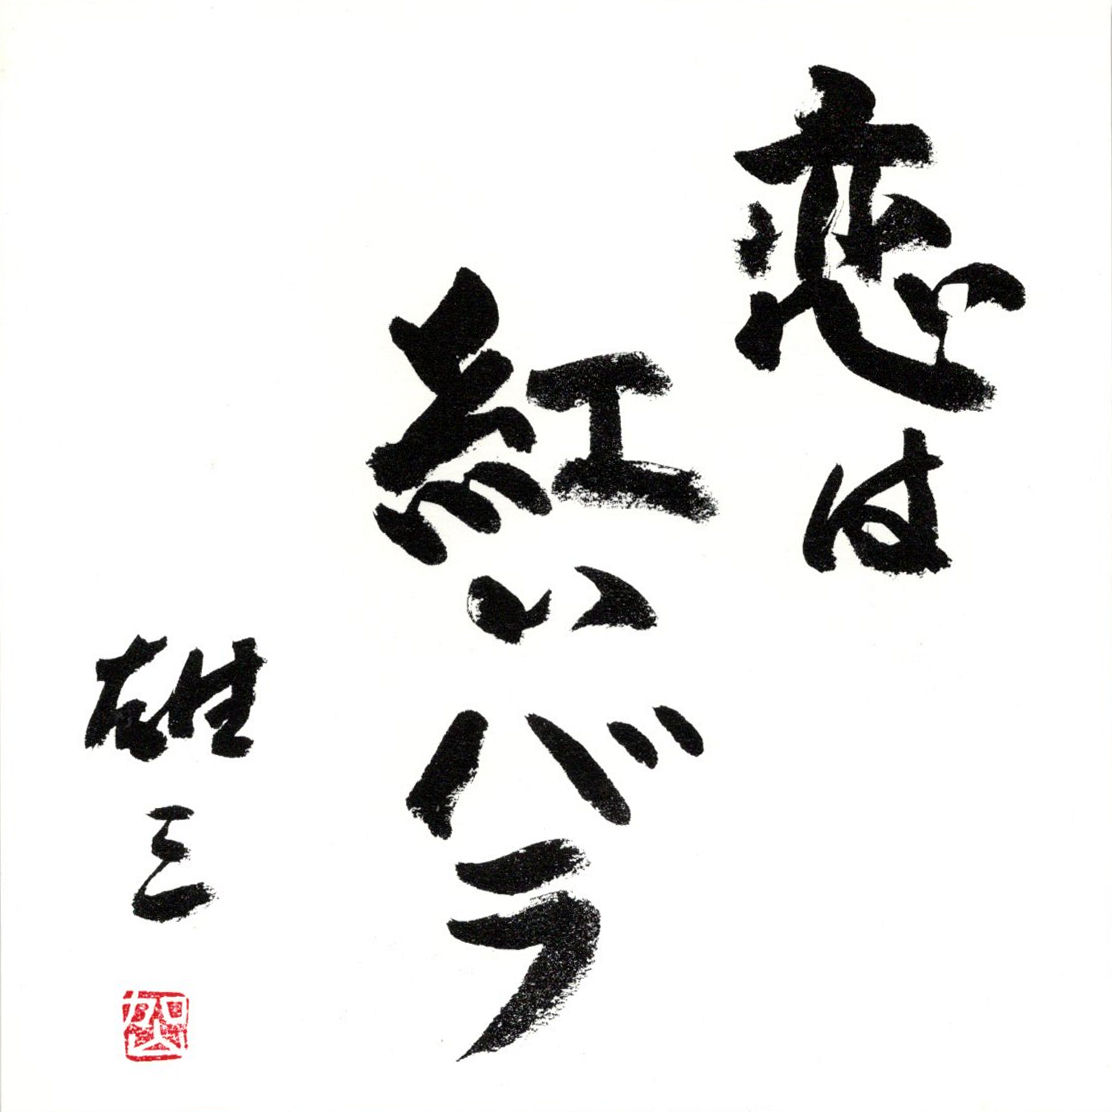 恋は
紅いバラ
雄三
加山